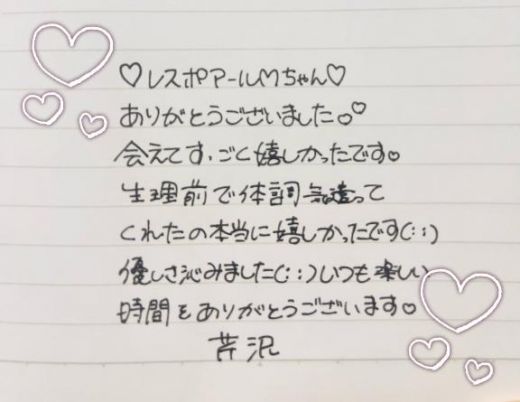 ♡レスポアールMちゃん♡
ありがとうございました。♡
会えてす、ごく嬉しかったです。
生理前で体調気遣って
くれたの本当に嬉しかったです(: :)
優しさ沁みました(: :)いつも楽しい
時間をありがとうございます。
芹沢